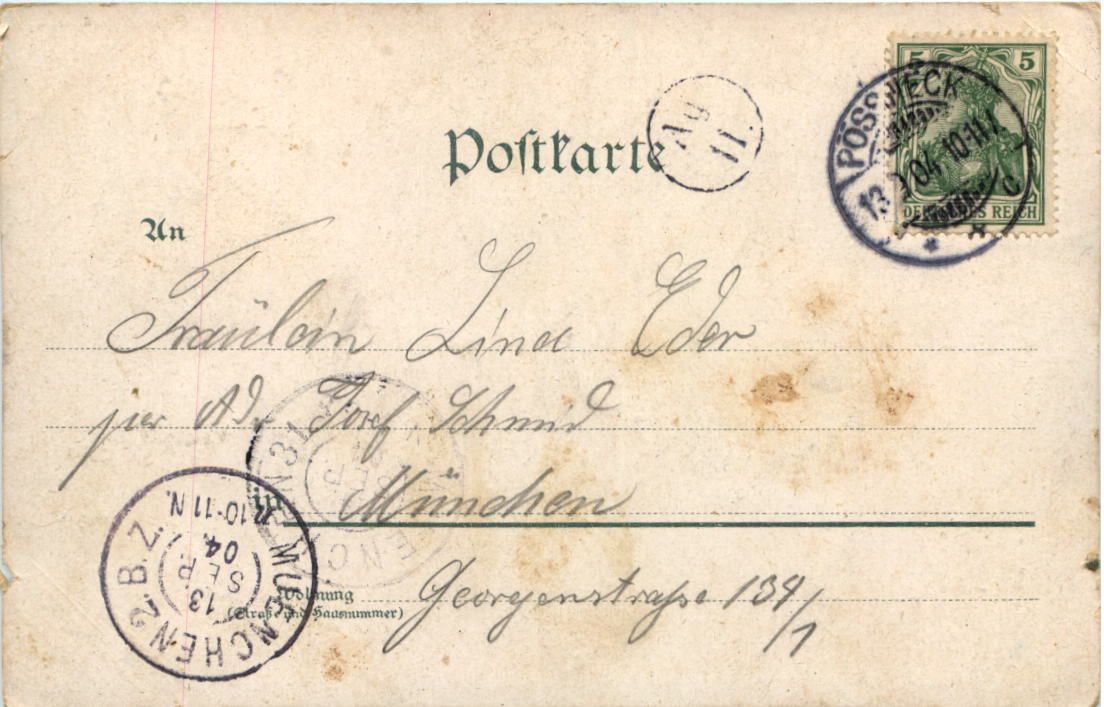 Postkarte
Ag
11.
5 5
DEUTSCHES REICH
PÖSSNECK
13 9 04 10-11 V.
C
An
Fräulein Lina Eder
per Ad. Josef Schmid
in München
Wohnung
(Straße und Hausnummer)
Georgenstraße 134/1
MUENCHEN 2. B.Z.
13
SEP.
04.
N. 10-11 N.
MUENCHEN 31
SEP